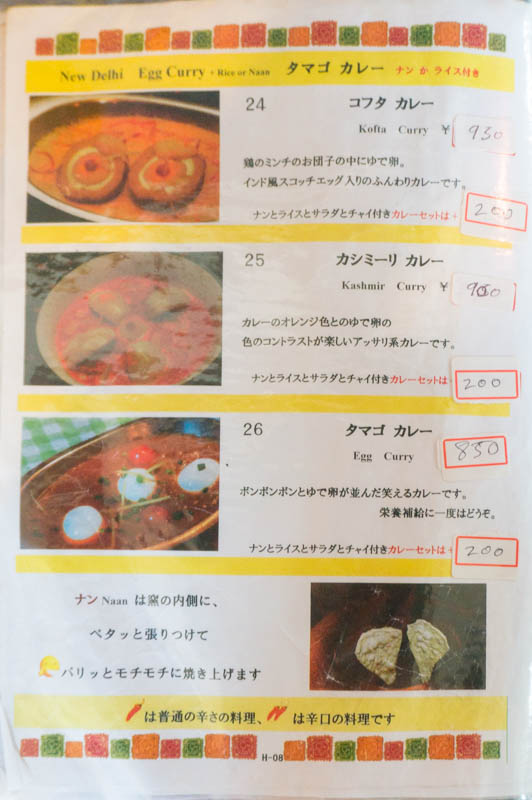 New Delhi Egg Curry + Rice or Naan タマゴ カレー ナン か ライス付き
24 コフタ カレー
Kofta Curry ¥ 930
鶏のミンチのお団子の中にゆで卵。
インド風スコッチエッグ入りのふんわりカレーです。
ナンとライスとサラダとチャイ付きカレーセットは + 200
25 カシミーリ カレー
Kashmir Curry ¥
カレーのオレンジ色とのゆで卵の
色のコントラストが楽しいアッサリ系カレーです。
ナンとライスとサラダとチャイ付きカレーセットは + 200
26 タマゴ カレー
Egg Curry 850
ボンボンボンとゆで卵が並んだ笑えるカレーです。
栄養補給に一度はどうぞ。
ナンとライスとサラダとチャイ付きカレーセットは + 200
ナン Naan は窯の内側に、
ペタッと張りつけて
パリッとモチモチに焼き上げます
は普通の辛さの料理、 は辛口の料理です
H-08